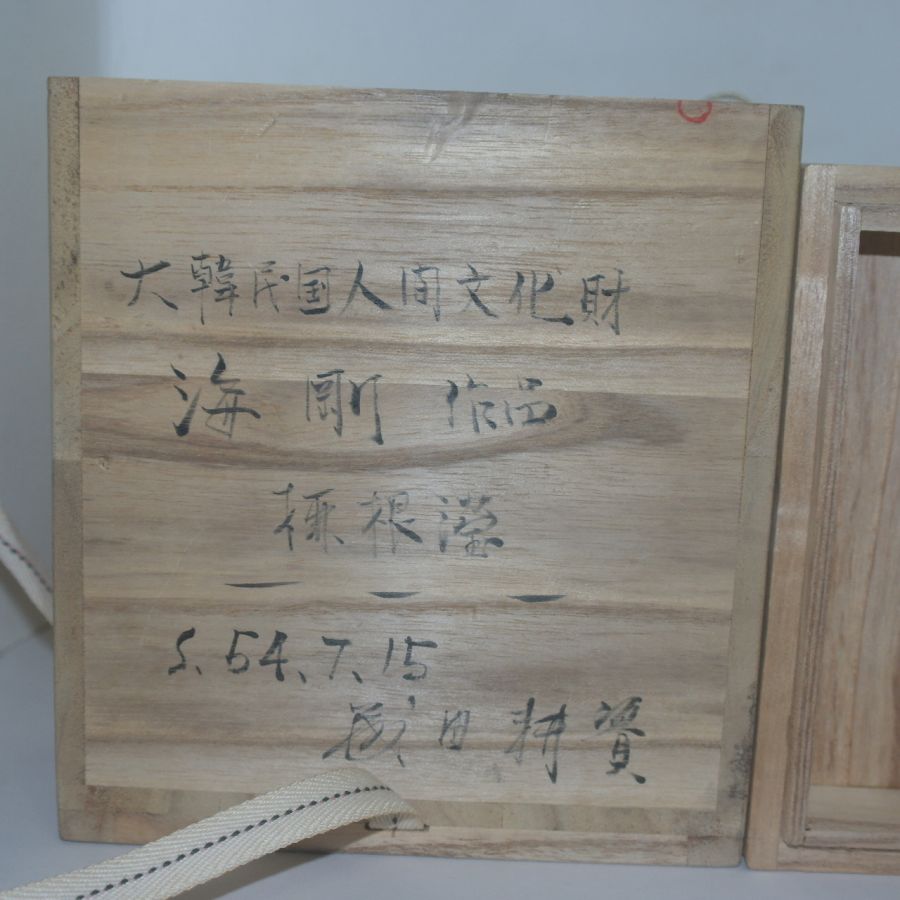 大韓民国人間文化財
海剛 作品
柳根瀅
S.54.7.15
田耕資